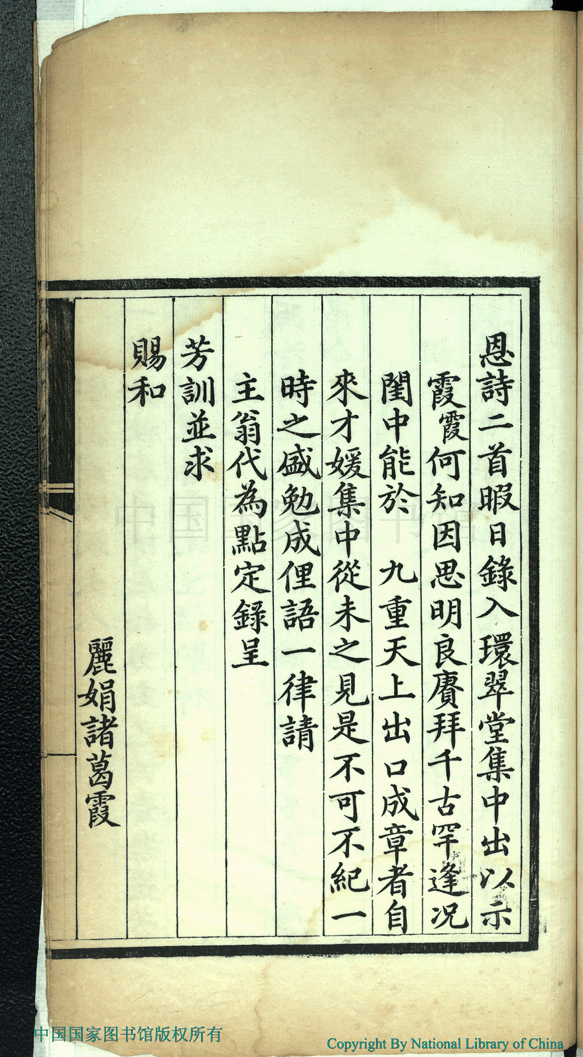 恩詩二首暇日錄入環翠堂集中出以示
霞霞何知因思明良賡拜千古罕逢况
閨中能於　九重天上出口成章者自
來才媛集中從未之見是不可不紀一
時之盛勉成俚語一律請
主翁代為點定錄呈
芳訓並求
賜和
麗娟諸葛霞
中国国家图书馆
中国国家图书馆版权所有
Copyright By National Library of China